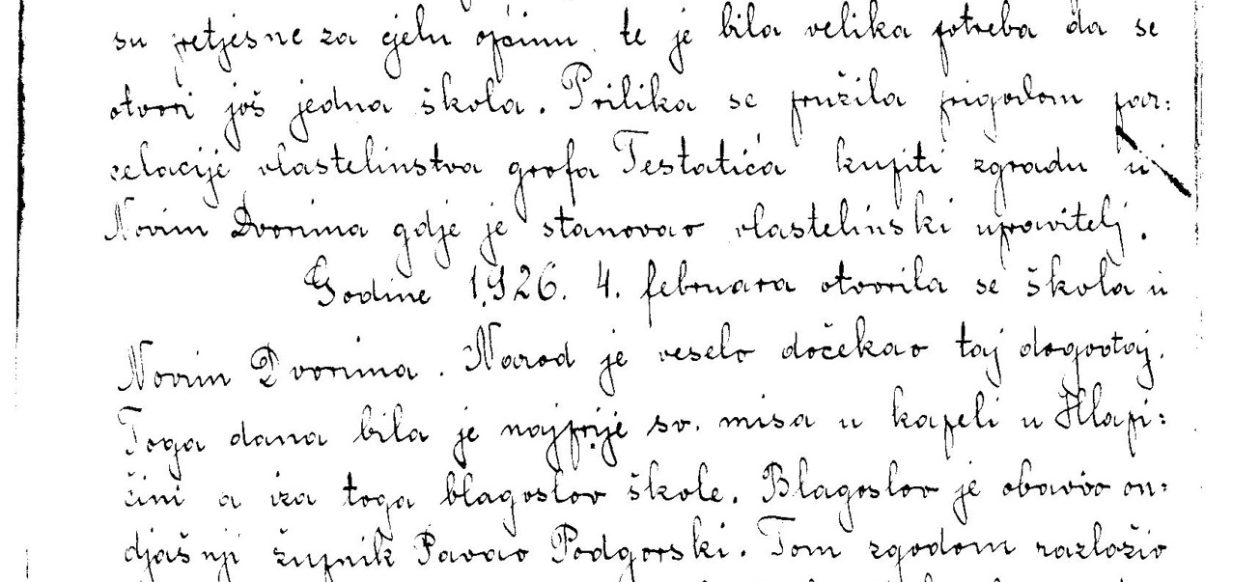 su pretjesne za cjelu općinu te je bila velika potreba da se
otvori još jedna škola. Prilika se pružila prigodom par:
celacije vlastelinstva grofa Testatića kupiti zgradu u
Novim Dvorima gdje je stanovao vlastelinski upravitelj.
Godine 1926. 4. februara otvorila se škola u
Novim Dvorima. Narod je veselo dočekao taj dogovtaj.
Toga dana bila je najprije sv. misa u kapeli u Hlapi:
čini a iza toga blagoslov škole. Blagoslov je obavio on:
djašnji župnik Pavao Podgorski. Tom zgodom razložio